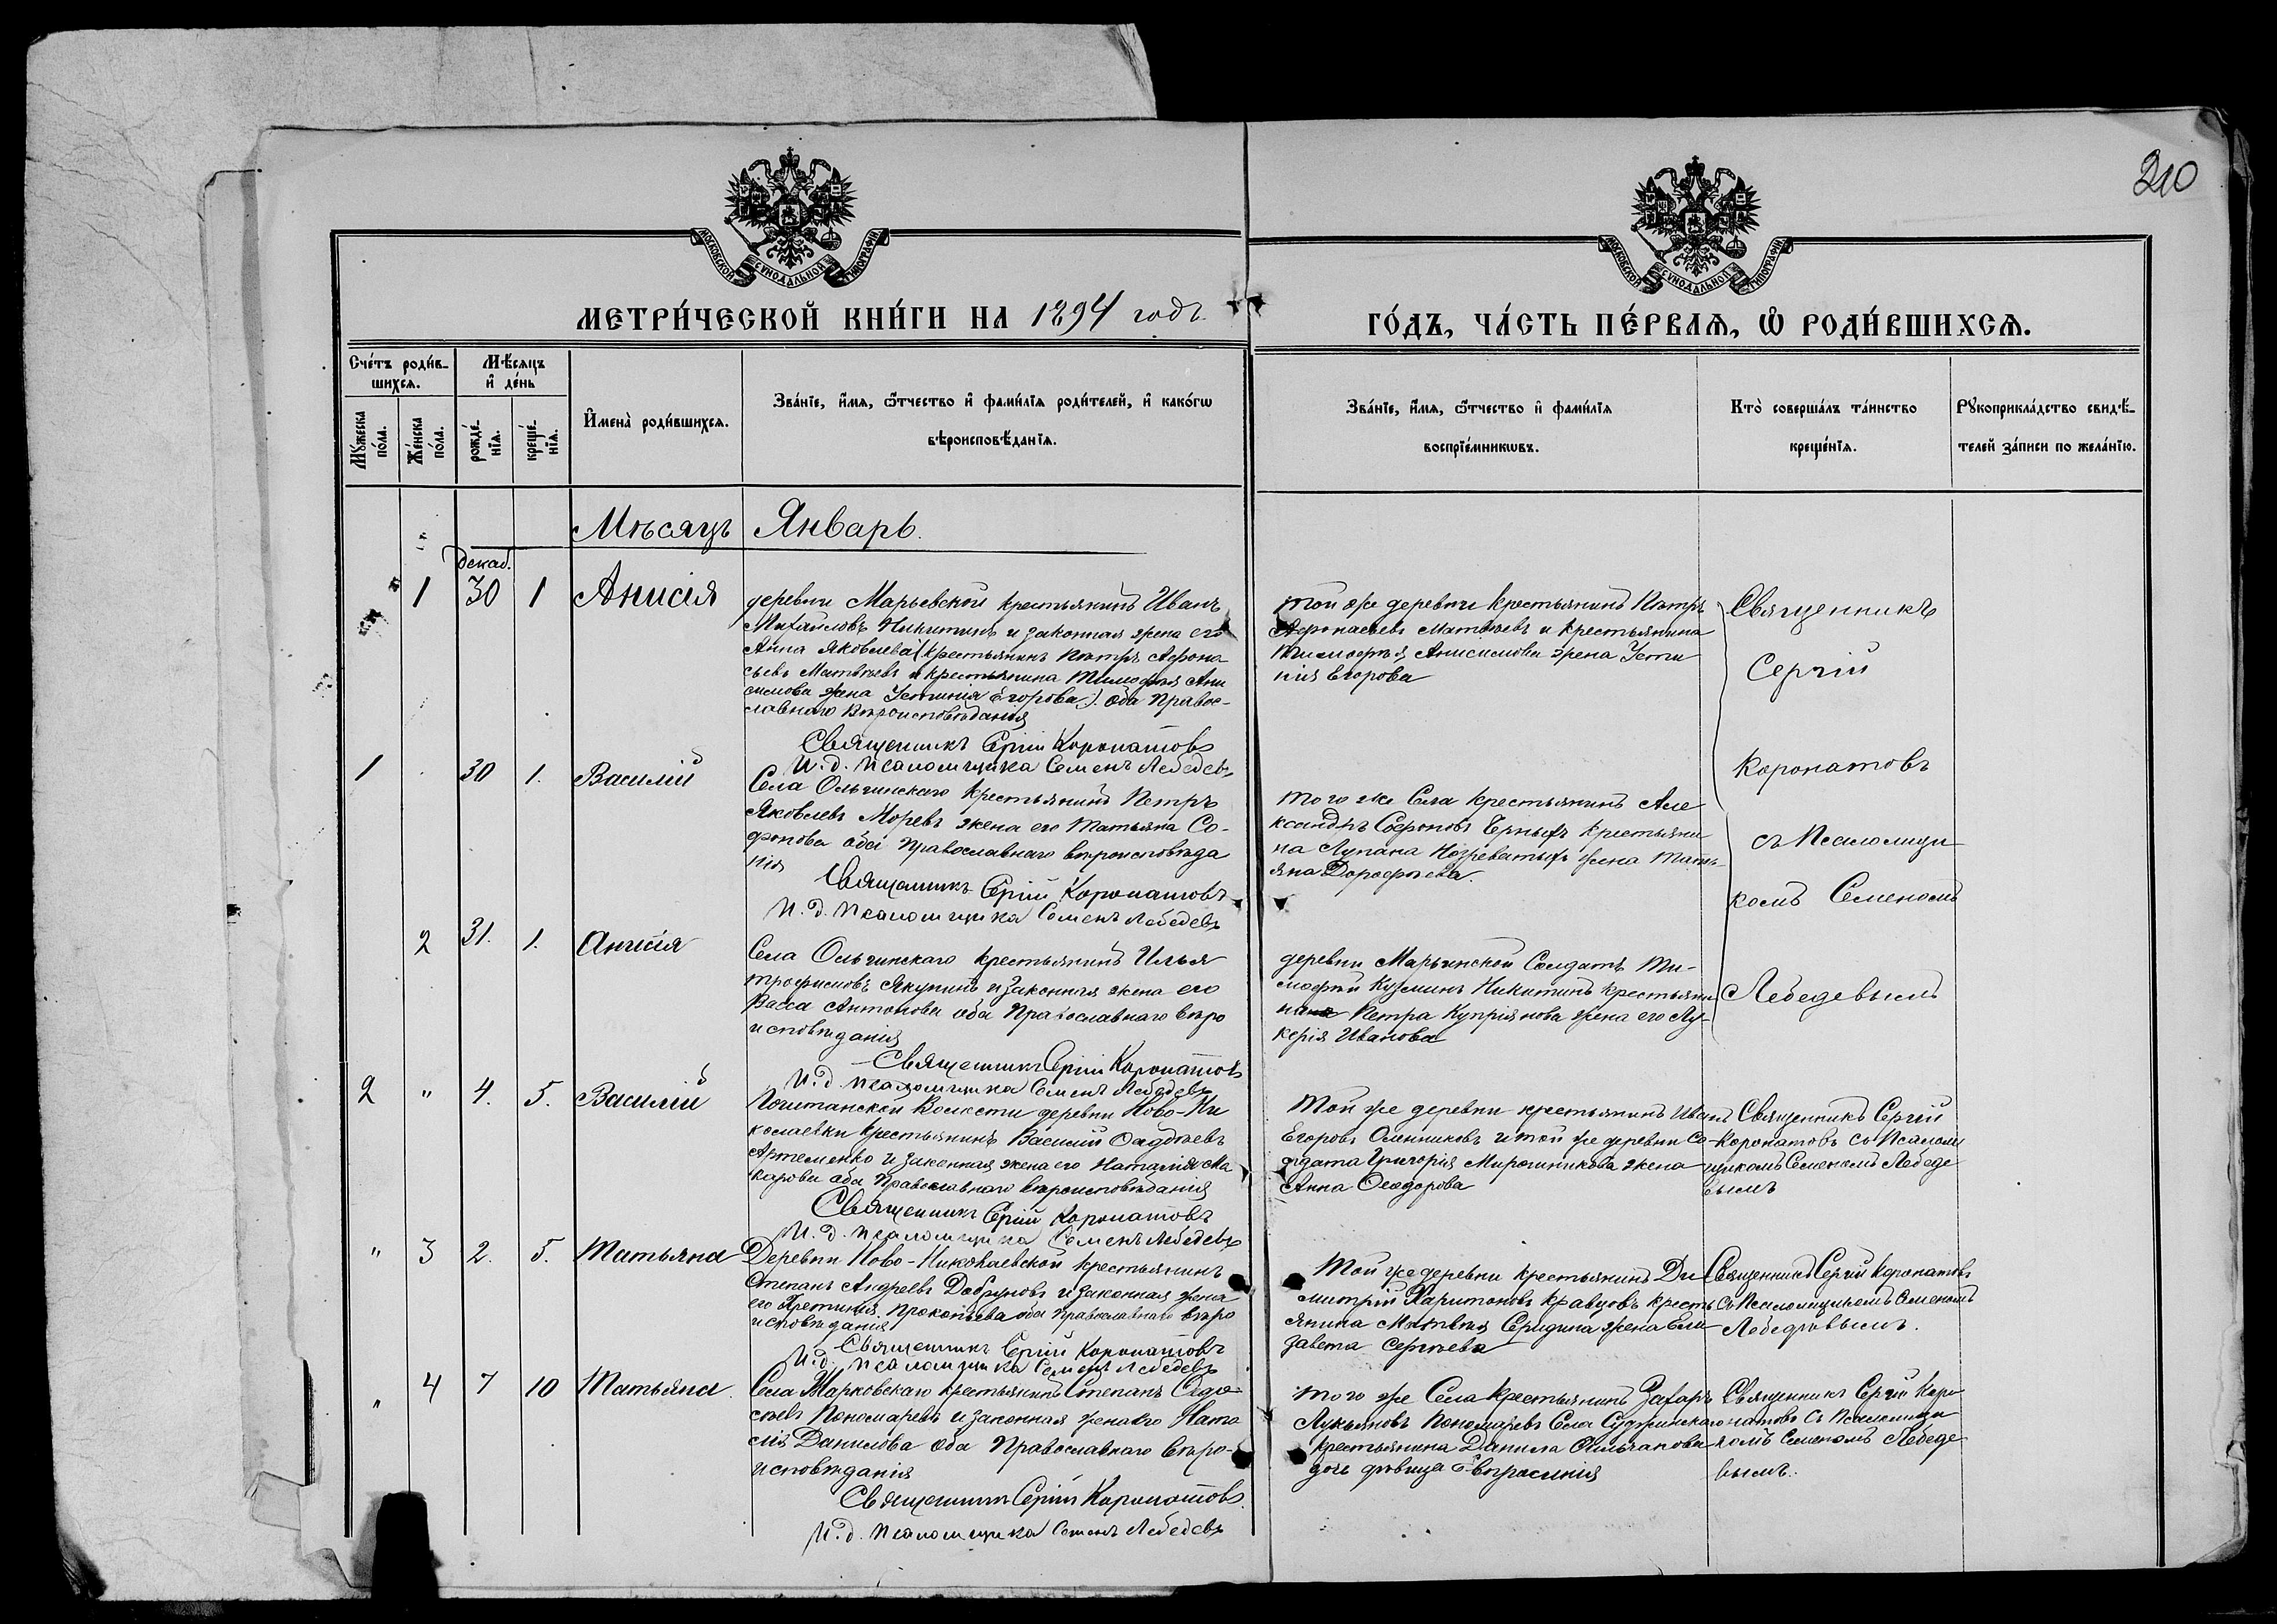 210
МОСКОВСКОЙ СѴНОДАЛЬНОЙ ТИПОГРАФІИ
МОСКОВСКОЙ СѴНОДАЛЬНОЙ ТИПОГРАФІИ
МЕТРИ́ЧЕСКОЙ КНИ́ГИ НА 1894 годъ
ГО́ДЪ, ЧА́СТЬ ПЕ́РВАѦ, Ѽ РОДИ́ВШИХСѦ.
Сче́тъ роди́в-
шихсѧ.
Мѣ́сѧцъ
и҆ де́нь
Мꙋ́жеска
по́ла.
Же́нска
по́ла.
рожде́-
нїѧ.
креще́-
нїѧ.
И҆мена̀ роди́вшихсѧ.
Зва́нїе, и҆́мѧ, ѻ҆́тчество и҆ фами́лїѧ роди́телей, и҆ како́гѡ
вѣроисповѣ́данїѧ.
Зва́нїе, и҆́мѧ, ѻ҆́тчество и҆ фами́лїѧ
воспрїе́мникѡвъ.
Кто̀ соверша́лъ та́инство
креще́нїѧ.
Рꙋкоприкла́дство свидѣ́-
телей за́писи по жела́нїю.
Мѣсяцъ Январь.
Декаб.
1 30 1 Анисія
деревни Марьевской крестьянинъ Иванъ
Михайловъ Никитинъ и законная жена его
Анна Яковлева (крестьянинъ Петръ Афона
сьевъ Матвѣевъ и крестьянина Тимофея Ани
симова жена Устинія Егорова). оба Правос-
лавнаго Вѣроисповѣданія
Священникъ Сергій Коронатовъ
И. д. псаломщика Семенъ Лебедевъ
Той же деревни крестьянинъ Петръ
Афонасьевъ Матвѣевъ и крестьянина
Тимофея Анисимова жена Усти
нія Егорова
Священникъ
Сергій
Коронатовъ
съ Псаломщи
комъ Семеномъ
Лебедевымъ
1 30 1. Василій
Села Ольгинскаго крестьянинъ Петръ
Яковлевъ Моревъ жена его Татьяна Со-
фонова оба Православнаго вѣроисповѣда
нія
Священникъ Сергій Коронатовъ
И. д. псаломщика Семенъ Лебедевъ
того же Села крестьянинъ Але
ксандръ Софоновъ Черныхъ крестьяни
на Лупана Ноздреватыхъ жена Тать-
яна Дорофѣева.
2 31. 1. Анисія
Села Ольгинскаго крестьянинъ Илья
Трофимовъ Якунинъ и законная жена его
Васса Антонова оба Православнаго вѣро
исповѣданія
Священникъ Сергій Коронатовъ
И. д. псаломщика Семенъ Лебедевъ
деревни Марьинской Солдатъ Ти-
мофей Кузминъ Никитинъ крестьяни
на Петра Купріянова жена его Лу-
керія Иванова
2 " 4. 5. Василій
Волости деревни Ново-Ни
колаевки крестьянинъ Василій Фаддѣевъ
Артеменко и законная жена его Наталія Ма
карова оба Православнаго вѣроисповѣданія
Священникъ Сергій Коронатовъ
И. д. псаломщика Семенъ Лебедевъ
Той же деревни крестьянинъ Иванъ
Егоровъ Оленниковъ и той же деревни Со-
лдата Григорія Мирошникова жена
Анна Ѳеодорова
Священникъ Сергій
Коронатовъ съ Псалом
щикомъ Семеномъ Лебеде
вымъ
" 3 2. 5. Татьяна
Деревни Ново-Николаевской крестьянинъ
Степанъ Андреевъ Добруновъ и законная жена
его Хретинія Прокопьева оба Православнаго вѣро
исповѣданія
Священникъ Сергій Коронатовъ
И. д. псаломщика Семенъ Лебедевъ
Той же деревни крестьянинъ Ди
митрій Харитоновъ Кравцовъ кресть
янина Матвея Середина жена Ели
завета Сергѣева
Священникъ Сергій Коронатовъ
съ Псаломщикомъ Семеномъ
Лебедевымъ.
" 4 7 10 Татьяна.
Села Марковскаго крестьянинъ Степанъ Федо
сѣевъ Пономаревъ и законная жена его Ната
лія Данилова оба Православнаго вѣро-
исповѣданія
Священникъ Сергій Коронатовъ.
И. д. псаломщика Семенъ Лебедевъ
того же Села крестьянинъ Захаръ
Лукьяновъ Пономаревъ Села
крестьянина Данила
дочь дѣвица Евфросинія
Священникъ Сергій Коро
натовъ съ Псаломщи
комъ Семеномъ Лебеде
вымъ.